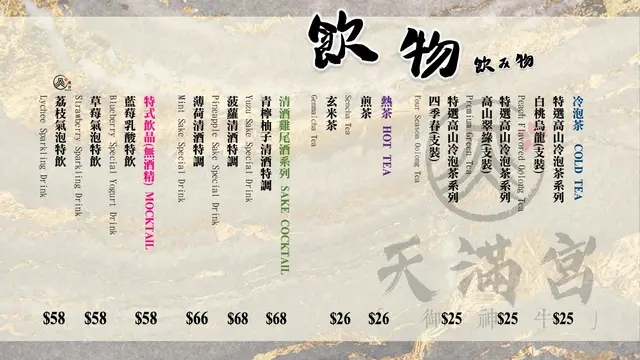 飲物 飲み物
冷泡茶 COLD TEA
特選高山冷泡茶系列
白桃烏龍(支裝)
Peach Flavored Oolong Tea
$25
特選高山冷泡茶系列
高山翠綠(支裝)
Premium Green Tea
$25
特選高山冷泡茶系列
四季春(支裝)
Four Season Oolong Tea
$25
熱茶 HOT TEA
煎茶
Sencha Tea
$26
玄米茶
Genmaicha Tea
$26
清酒雞尾酒系列 SAKE COCKTAIL
青檸柚子清酒特調
Yuzu Sake Special Drink
$68
菠蘿清酒特調
Pineapple Sake Special Drink
$68
薄荷清酒特調
Mint Sake Special Drink
$66
特式飲品(無酒精) MOCKTAIL
藍莓乳酸特飲
Blueberry Special Yogurt Drink
$58
草莓氣泡特飲
Strawberry Sparkling Drink
$58
荔枝氣泡特飲
Lychee Sparkling Drink
$58
天滿宮
「御神牛」